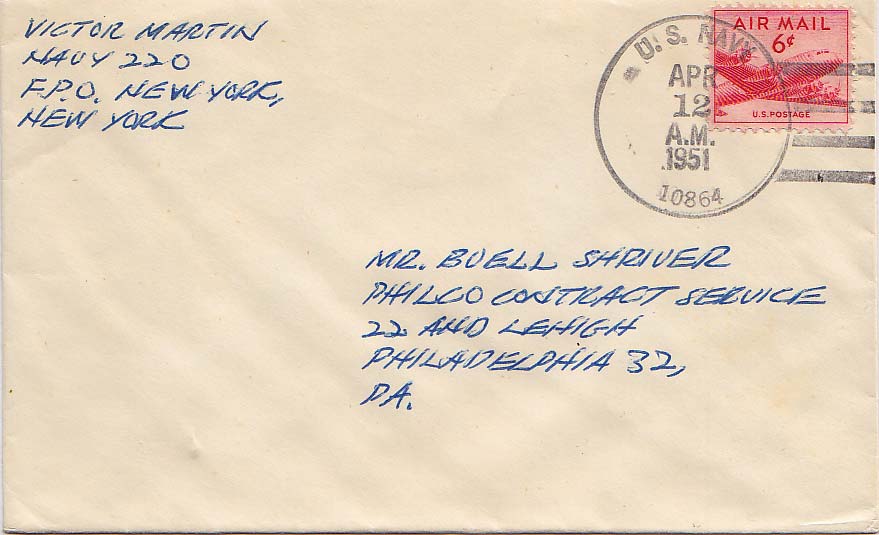 VICTOR MARTIN
NAVY 220
F.P.O. NEW YORK,
NEW YORK
U.S. NAVY
APR
12
A.M.
1951
10864
AIR MAIL
6¢
U.S. POSTAGE
MR. BUELL SHRIVER
PHILCO CONTRACT SERVICE
22 AND LEHIGH
PHILADELPHIA 32,
PA.